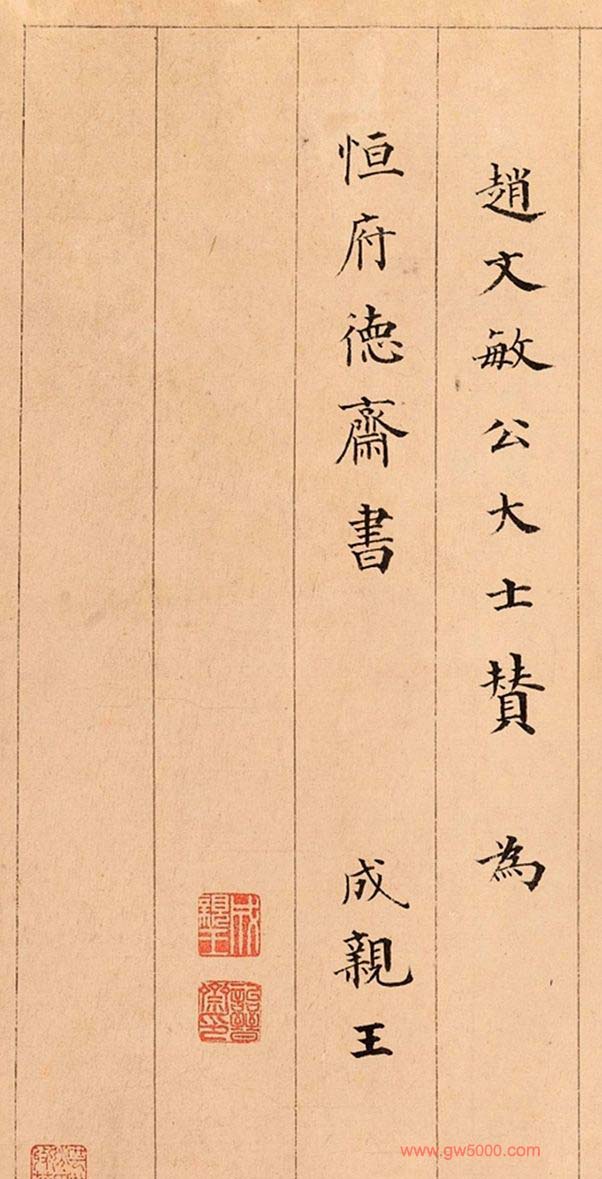 趙文敏公大士賛 為
恒府德齋書 成親王
成親王
詒晉齋印
www.gw5000.com